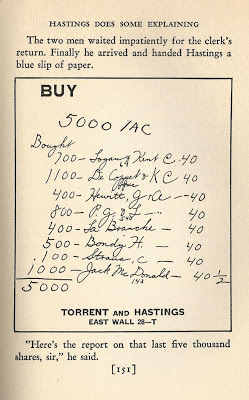 HASTINGS DOES SOME EXPLAINING
The two men waited impatiently for the clerk's
return. Finally he arrived and handed Hastings a
blue slip of paper.
BUY
5000 IAC
Bought
700 - Logan & Kent C. 40
1100 - De Coppet & K C - 40
400 - Hewitt, G. A - -40
800 - P. g & S - 40
400 - La Branche - 40
500 - Bondy H. - 40
100 - Straus, C - 40
1000 - Jack McDonald - 40 1/2
5000
TORRENT and HASTINGS
EAST WALL 28—T
"Here's the report on that last five thousand
shares, sir," he said.
[151]